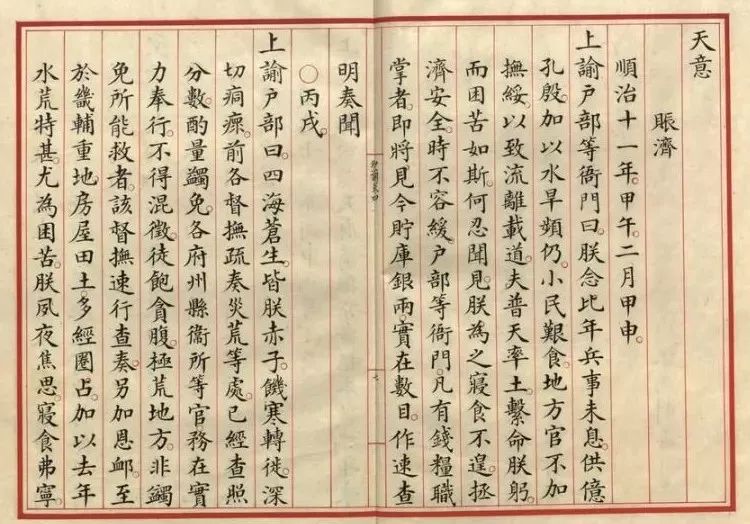 天意
賑濟
順治十一年。甲午。二月甲申。
上諭戶部等衙門曰。朕念比年兵事未息。供億
孔殷。加以水旱頻仍。小民艱食。地方官不加
撫綏。以致流離載道。夫普天率土。繫命朕躬。
而困苦如斯。何忍聞見。朕為之寢食不遑。拯
濟安全。時不容緩。戶部等衙門。凡有錢糧職
掌者。即將見今貯庫銀兩。實在數目。作速查
明奏聞
○丙戌。
上諭戶部曰。四海蒼生。皆朕赤子。饑寒轉徙。深
切痌瘝。前各督撫疏奏災荒等處。已經查照
分數。酌量蠲免。各府州縣衞所等官。務在實
力奉行。不得混徵。徒飽貪腹。極荒地方。非蠲
免所能救者。該督撫速行查奏。另加恩卹。至
於畿輔重地。房屋田土。多經圈占。加以去年
水荒特甚。尤為困苦。朕夙夜焦思。寢食弗寧。
七